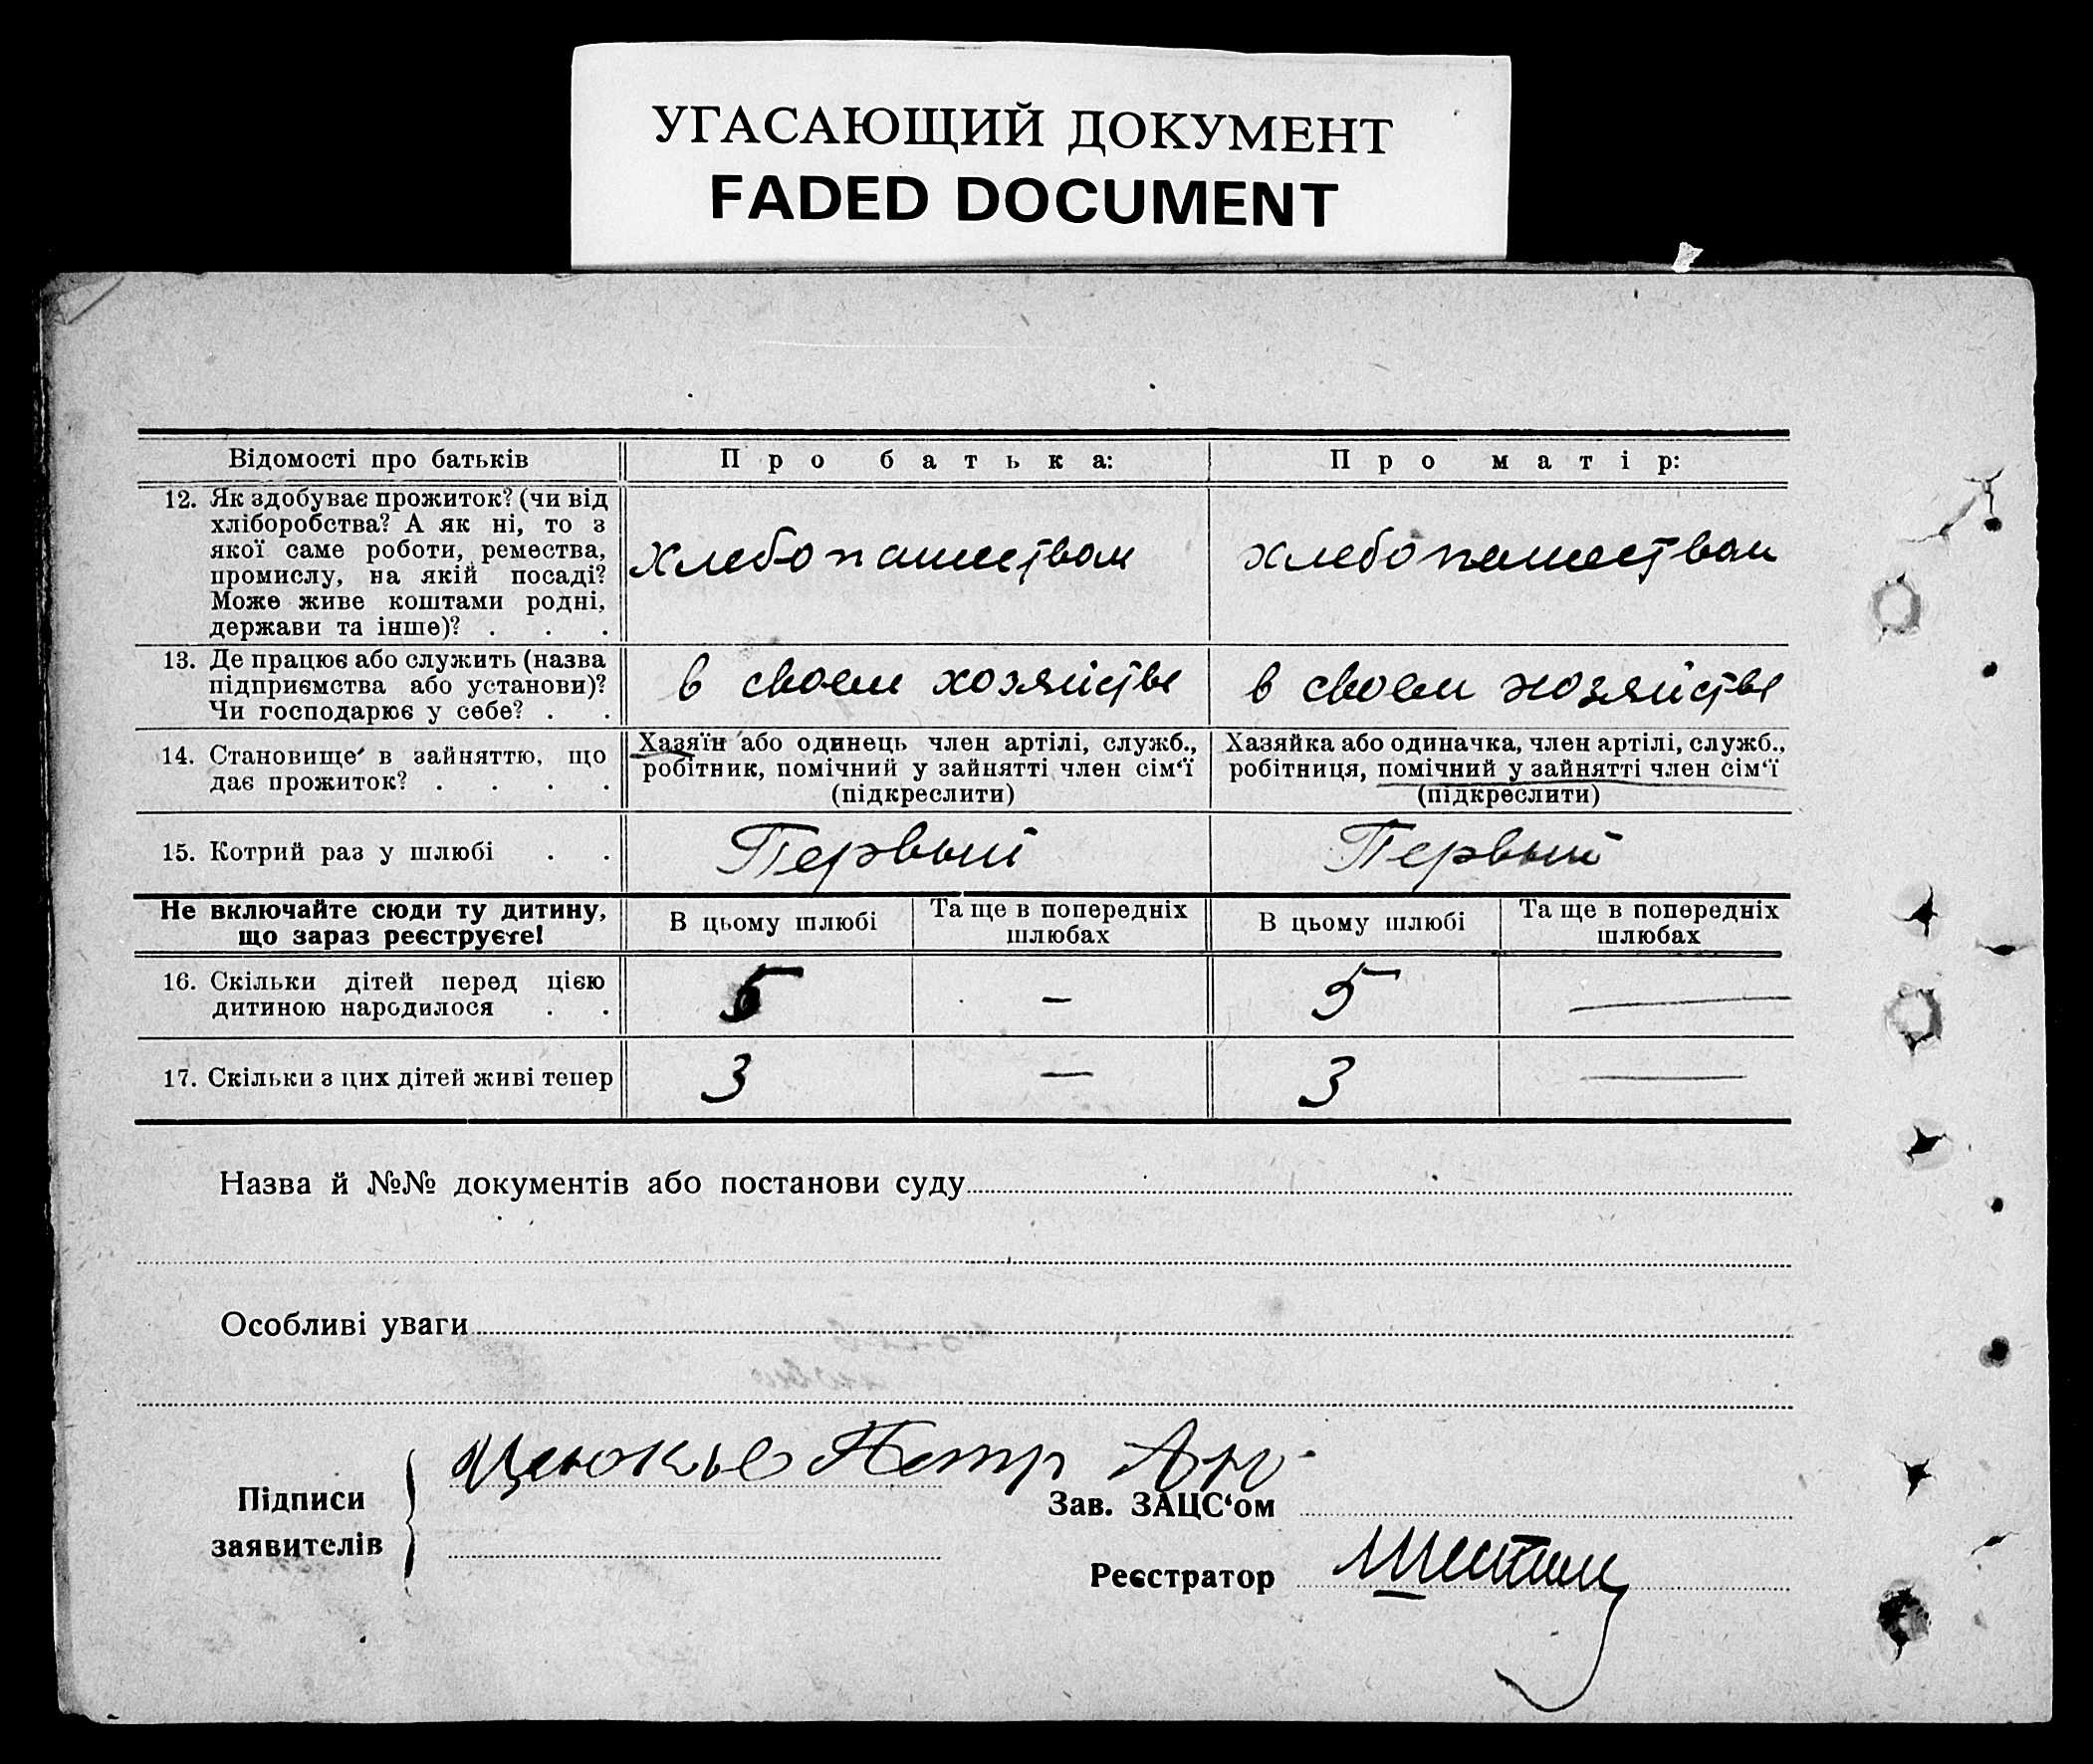 УГАСАЮЩИЙ ДОКУМЕНТ
FADED DOCUMENT
Відомості про батьків
Про батька:
Про матір:
12. Як здобуває прожиток? (чи від
хліборобства? А як ні, то з
якої саме роботи, ремества,
промислу, на якій посаді?
Може живе коштами родні,
держави та інше)? . . .
хлебопашеством
хлебопашеством
13. Де працює або служить (назва
підприємства або установи)?
Чи господарює у себе? . .
в своем хозяйстве
в своем хозяйстве
14. Становище в зайняттю, що
дає прожиток? . . . .
Хазяїн або одинець член артілі, служб.,
робітник, помічний у зайнятті член сім‘ї
(підкреслити)
Хазяйка або одиначка, член артілі, служб.,
робітниця, помічний у зайнятті член сім‘ї
(підкреслити)
15. Котрий раз у шлюбі . .
Первый
Первый
Не включайте сюди ту дитину,
що зараз реєструєте!
В цьому шлюбі
Та ще в попередніх
шлюбах
В цьому шлюбі
Та ще в попередніх
шлюбах
16. Скільки дітей перед цією
дитиною народилося . .
5
–
5
—
17. Скільки з цих дітей живі тепер
3
—
3
—
Назва й №№ документів або постанови суду
Особливі уваги
Петр
Підписи
заявителів
Зав. ЗАЦС‘ом
Реєстратор